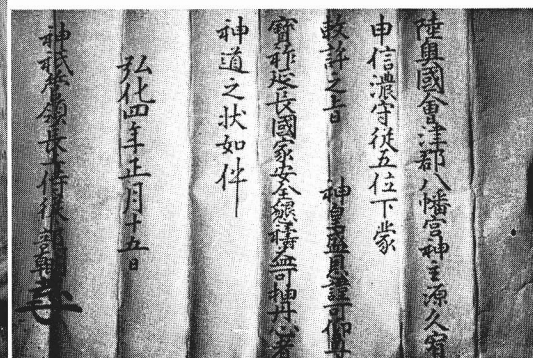 陸奥國會津郡八幡宮神主源久宿
申信濃守従五位下蒙
故許之上日 神皇盛恩謹可仰
寳祚延長國家安全懇禱益可抽丹心者
神道之状如件
弘化四年正月十五日
神祇管領長上侍従